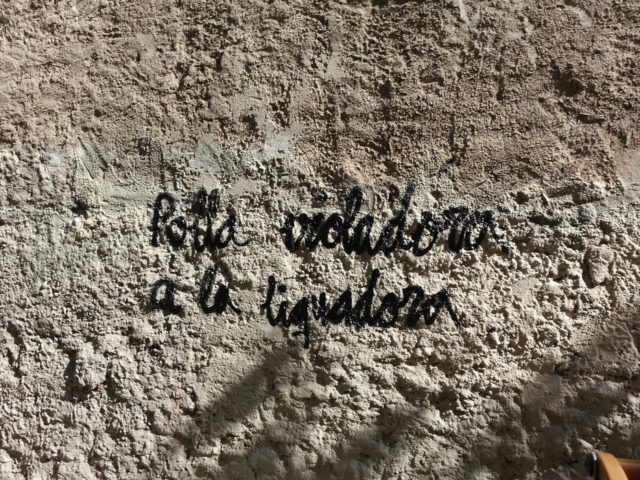 Polla violadora,
a la liquadora